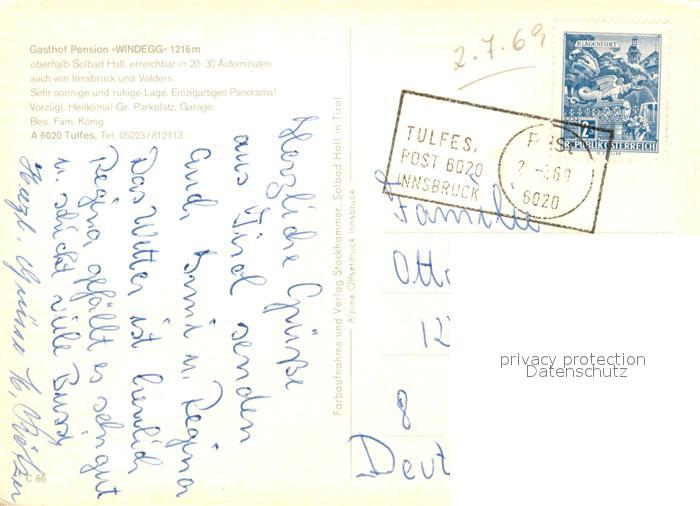 Gasthof Pension »WINDEGG« 1216 m
oberhalb Solbad Hall, erreichbar in 20-30 Autominuten
auch von Innsbruck und Volders.
Sehr sonnige und ruhige Lage. Einzigartiges Panorama!
Vorzügl. Heilklima! Gr. Parkplatz, Garage.
Bes. Fam. König
A 6020 Tulfes, Tel. 05223/812113
Herzliche Grüße
aus Tirol senden
Euch u. Regina
Das Wetter ist herrlich
Regina gefällt es sehr gut
u. schickt viele Bussi
Herzl. Grüsse
C 66
Farbaufnahme und Verlag Stockhammer, Solbad Hall in Tirol
Alpine Offsetdruck Innsbruck
2.7.69
KLAGENFURT
2S
REPUBLIK ÖSTERREICH
TULFES,
POST 6020
INNSBRUCK
6020
Familie
Otto
12
8
Deut
privacy protection
Datenschutz